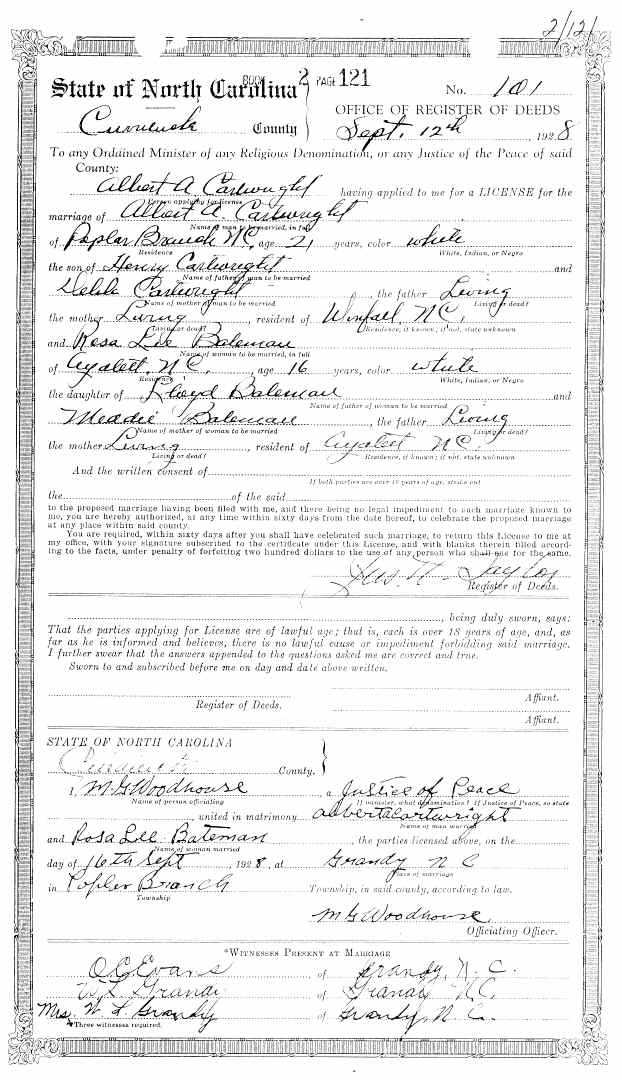 2/12/
State of North Carolina BOOK 2 PAGE 121 No. 101
OFFICE OF REGISTER OF DEEDS
Currituck County Sept. 12th, 1928
To any Ordained Minister of any Religious Denomination, or any Justice of the Peace of said
County:
Albert A. Cartwright having applied to me for a LICENSE for the
Person applying for license
marriage of Albert A. Cartwright
Name of man to be married, in full
of Poplar Branch NC, age 21 years, color white
Residence White, Indian, or Negro
the son of Henry Cartwright and
Name of father of man to be married
Cartwright the father Living
Name of mother of man to be married Living or dead?
the mother Living, resident of Winfall, N.C.
Living or dead? Residence, if known; if not, state unknown
and Rosa Lee Bateman
Name of woman to be married, in full
of Aydlett, N.C., age 16 years, color white
Residence White, Indian, or Negro
the daughter of Lloyd Bateman and
Name of father of woman to be married
Meddie Bateman, the father Living
Name of mother of woman to be married Living or dead?
the mother Living, resident of Aydlett NC.
Living or dead? Residence, if known; if not, state unknown
And the written consent of
If both parties are over 18 years of age, strike out
the of the said
to the proposed marriage having been filed with me, and there being no legal impediment to such marriage known to
me, you are hereby authorized, at any time within sixty days from the date hereof, to celebrate the proposed marriage
at any place within said county.
You are required, within sixty days after you shall have celebrated such marriage, to return this License to me at
my office, with your signature subscribed to the certificate under this License, and with blanks therein filled accord-
ing to the facts, under penalty of forfeiting two hundred dollars to the use of any person who shall sue for the same.
Register of Deeds.
, being duly sworn, says:
That the parties applying for License are of lawful age; that is, each is over 18 years of age, and, as
far as he is informed and believes, there is no lawful cause or impediment forbidding said marriage.
I further swear that the answers appended to the questions asked me are correct and true.
Sworn to and subscribed before me on day and date above written.
Affiant.
Register of Deeds.
Affiant.
STATE OF NORTH CAROLINA
Currituck County.
I, M G Woodhouse a Justice of Peace
Name of person officiating If minister, what denomination? If Justice of Peace, so state
, united in matrimony albert a cartwright
Name of man married
and Rosa Lee Bateman, the parties licensed above, on the
Name of woman married
day of 16th Sept 1928, at Grandy N C
Place of marriage
in Popler Branch Township, in said county, according to law.
Township
M G Woodhouse
Officiating Officer.
*WITNESSES PRESENT AT MARRIAGE
O C Evans of Grandy, N. C.
W. L. Grandy of Grandy N.C.
Mrs. W. L. Grandy of Grandy, N. C.
*Three witnesses required.